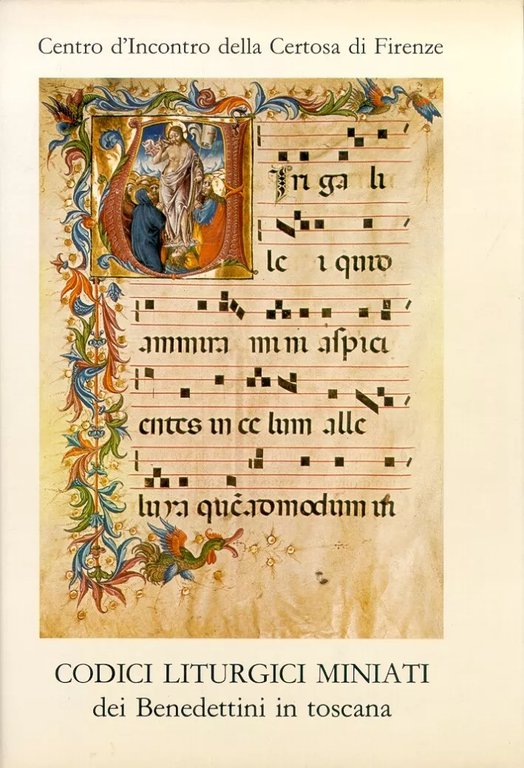 Centro d'Incontro della Certosa di Firenze
Uiri ga li
le i quid
ammira mini aspici
entes in ce lum alle
luya quēadmodum in
CODICI LITURGICI MINIATI
dei Benedettini in toscana